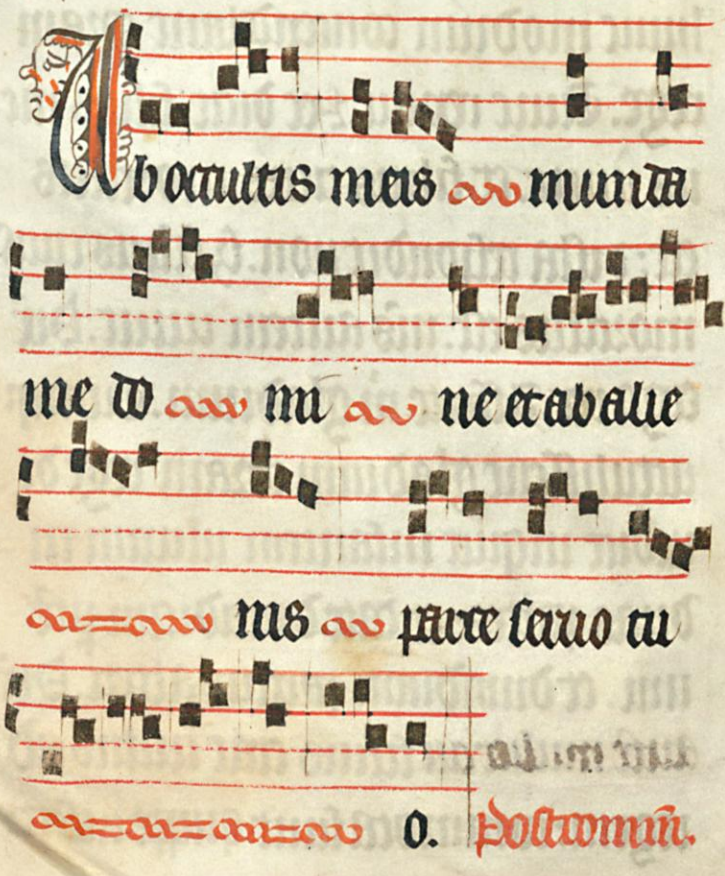 Ab occultis meis munda
me do mi ne et ab alie
nis parce servo tu
o. Postcomm̃.